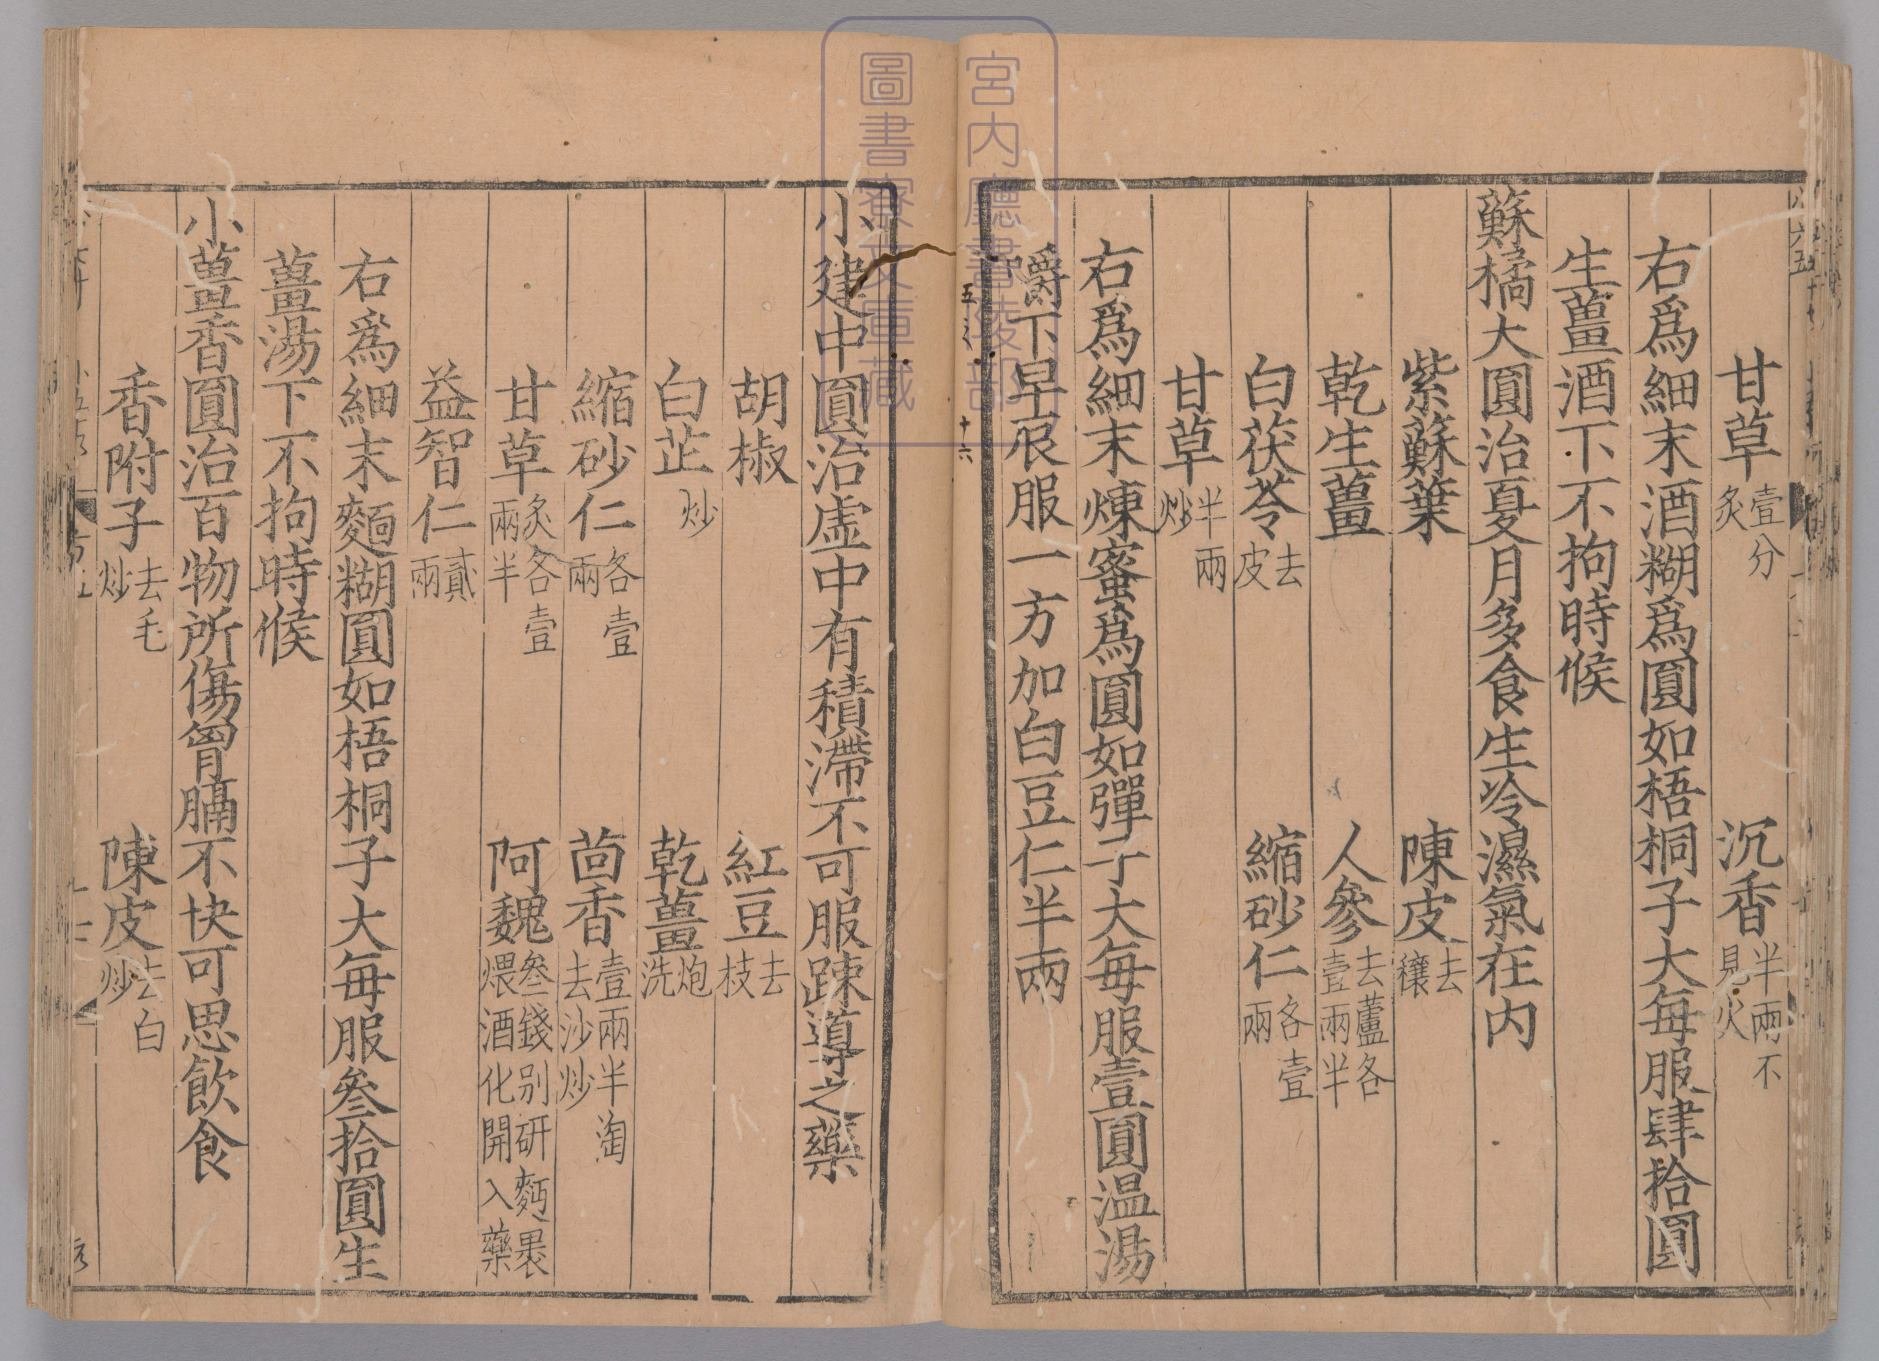 甘草壹分炙　沉香半兩不見火
右爲細末酒糊爲圓如梧桐子大每服肆拾圓
生薑酒下不拘時候
蘇橘大圓治夏月多食生冷濕氣在內
紫蘇葉　陳皮去穰
乾生薑　人參去蘆各壹兩半
白茯苓去皮　縮砂仁各壹兩
甘草半兩炒
右爲細末煉蜜爲圓如彈子大每服壹圓温湯
嚼下早辰服一方加白豆仁半兩
小建中圓治虛中有積滯不可服踈導之藥
胡椒　紅豆去枝
白芷炒　乾薑炮洗
縮砂仁各壹兩　茴香壹兩半淘去沙炒
甘草炙各壹兩半　阿魏叄錢别研麪裹煨酒化開入藥
益智仁貳兩
右爲細末麵糊圓如梧桐子大每服叄拾圓生
薑湯下不拘時候
小薑香圓治百物所傷胷膈不快可思飲食
香附子去毛炒　陳皮去白炒
宮內廳書陵部
圖書寮文庫藏